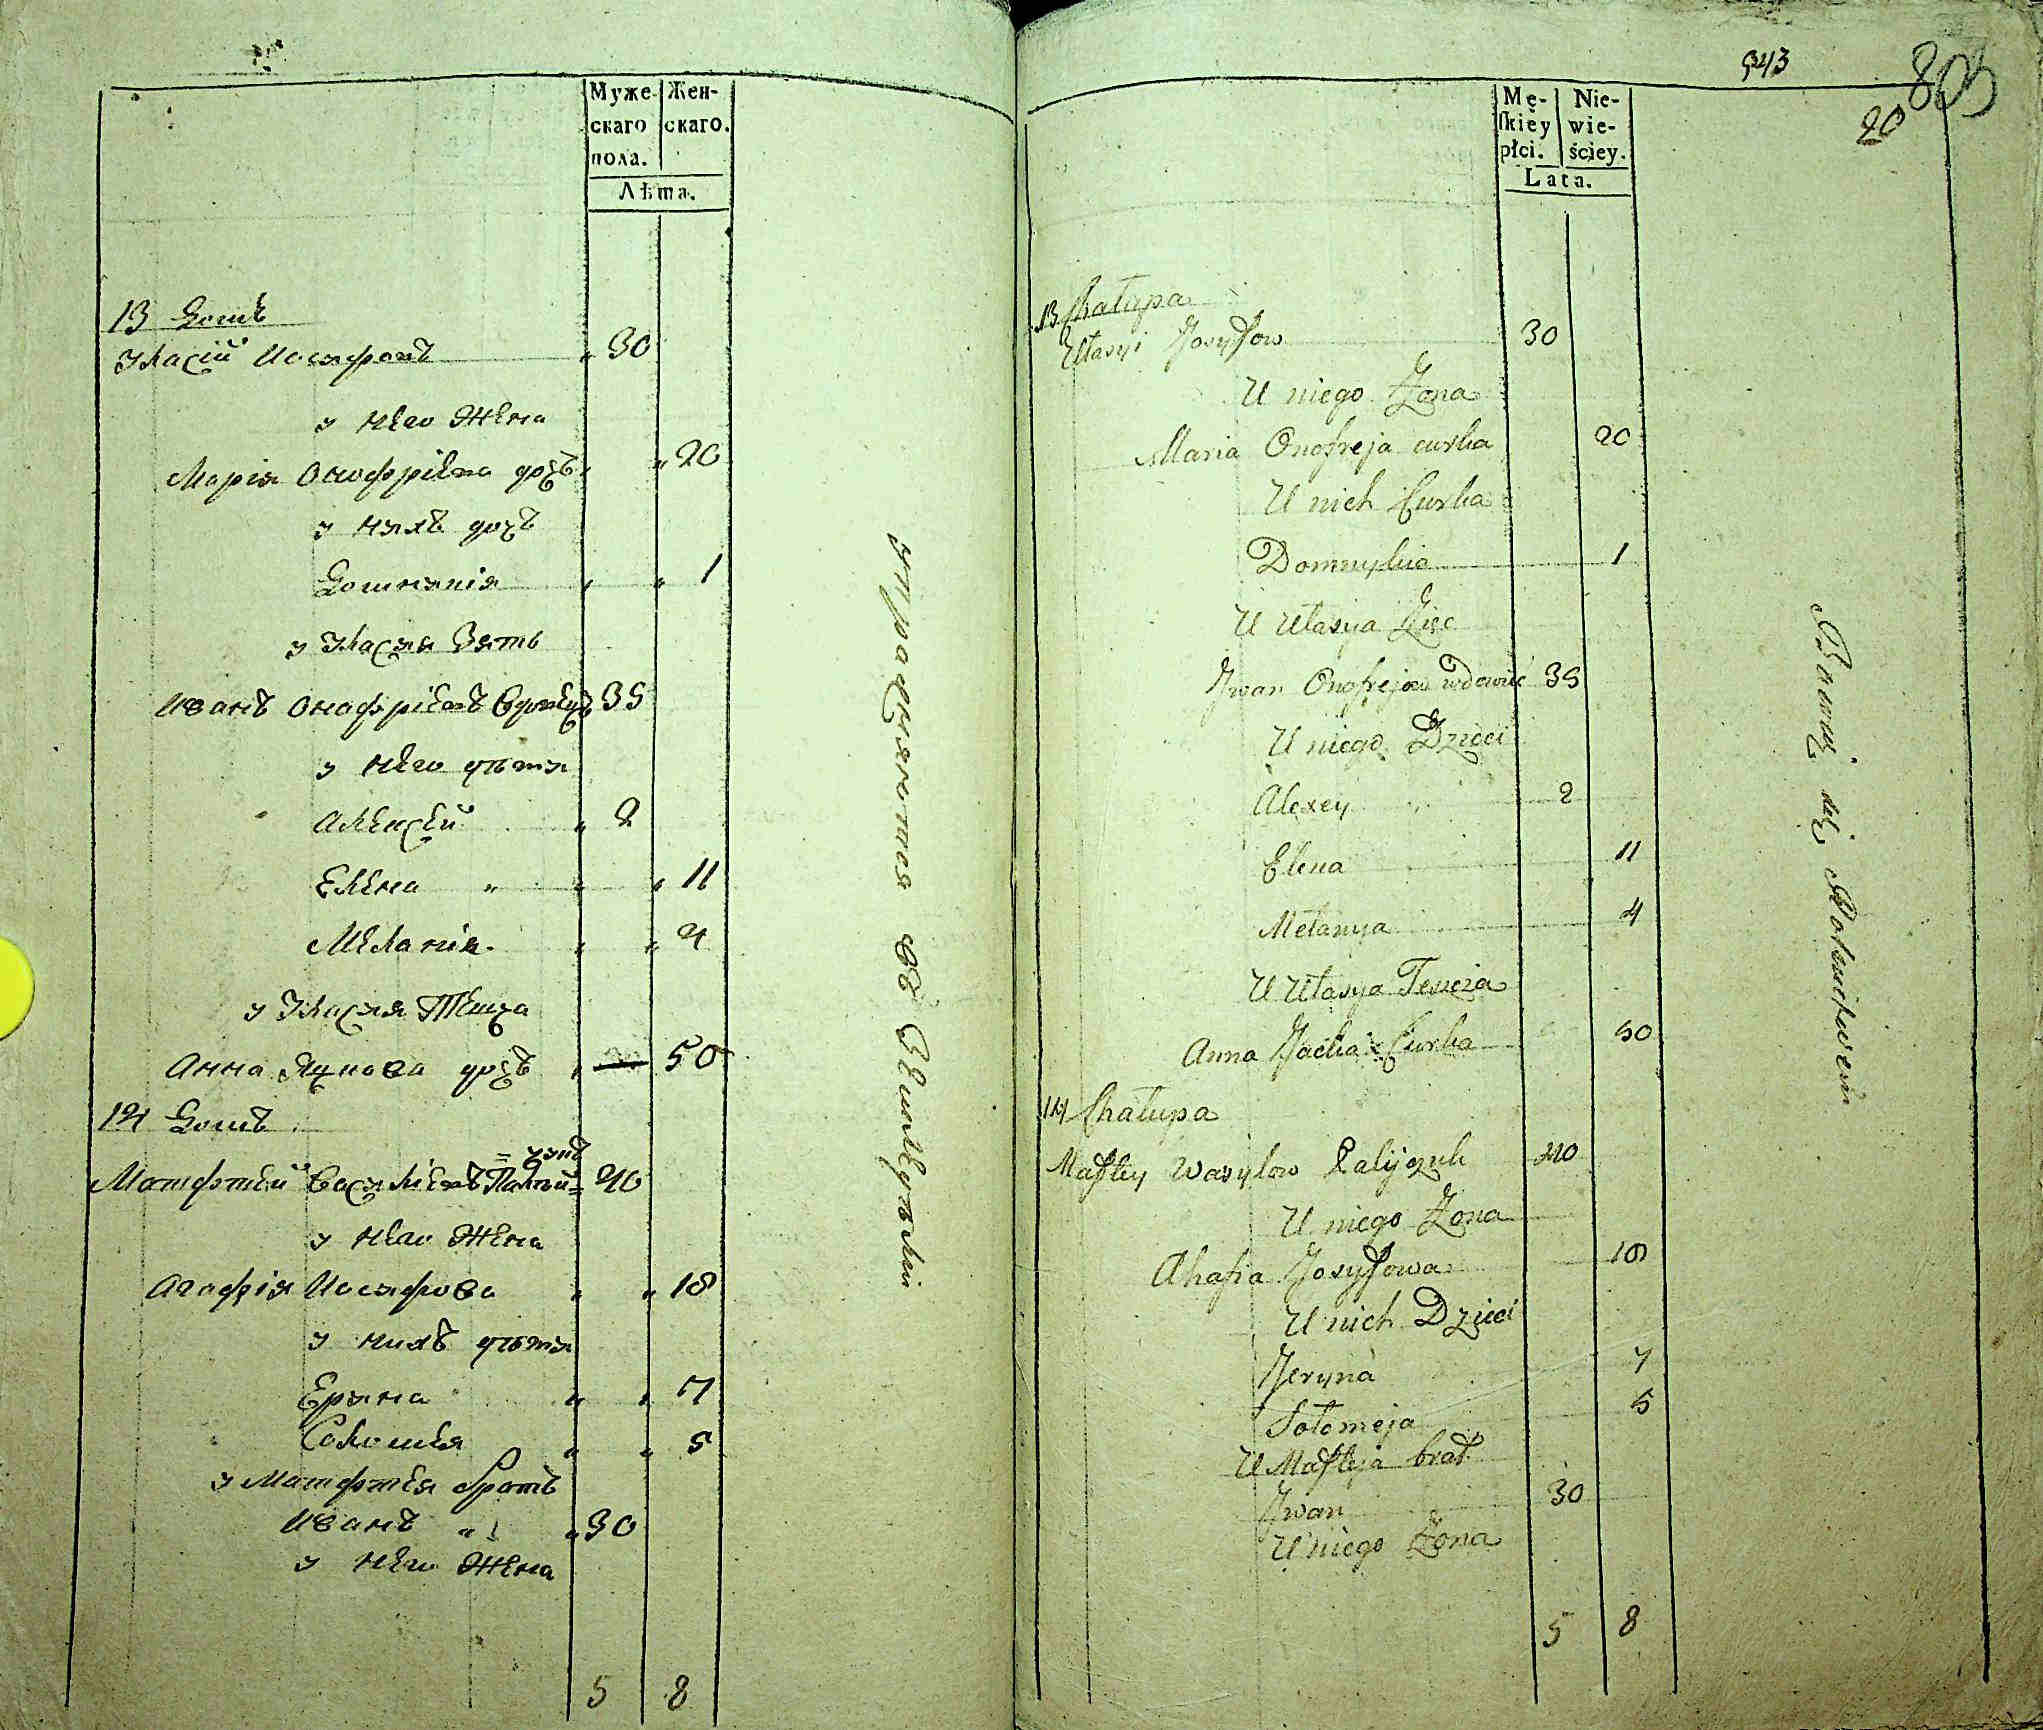 Муже- Жен-
скаго скаго.
пола.
Лѣта.
13 Домъ
Уласій Иосифовъ 30
у него Жена
Марія Онофріева дочь 20
у нихъ дочь
Домникія 1
у Уласия Зять
Иванъ Онофріевъ вдовецъ 35
у него дѣти
Алексей 2
Елена 11
Меланія 4
у Уласия Теща
Анна Яцкова дочь 50
14 Домъ
Матфтей Василіевъ 40
у него Жена
Агафія Иосифова 18
у нихъ дѣти
Ерина 7
Соломея 5
у Матфтея братъ
Иванъ 30
у него Жена
5 8
упражняются въ Земледѣліи
543
803
20
Mę- Nie-
skiey wie-
płci. ściey.
Lata.
13 Chałupa
Ułasyi Josyfow 30
U niego Żona
Maria Onofreja curka 20
U nich Curka
Domnykia 1
U Ułasya Zięc
Jwan Onofrejow wdowiec 35
U niego Dzieci
Alexey 2
Elena 11
Mełanya 4
U Ułasya Teszcza
Anna Jacka Curka 50
14 Chałupa
Matftey Wasylow 40
U niego Żona
Ahafia Josyfowa 18
U nich Dzieci
Jeryna 7
Sołomeja 5
U Matfteja brat
Jwan 30
U niego Żona
5 8
Bawią się Rolnictwem